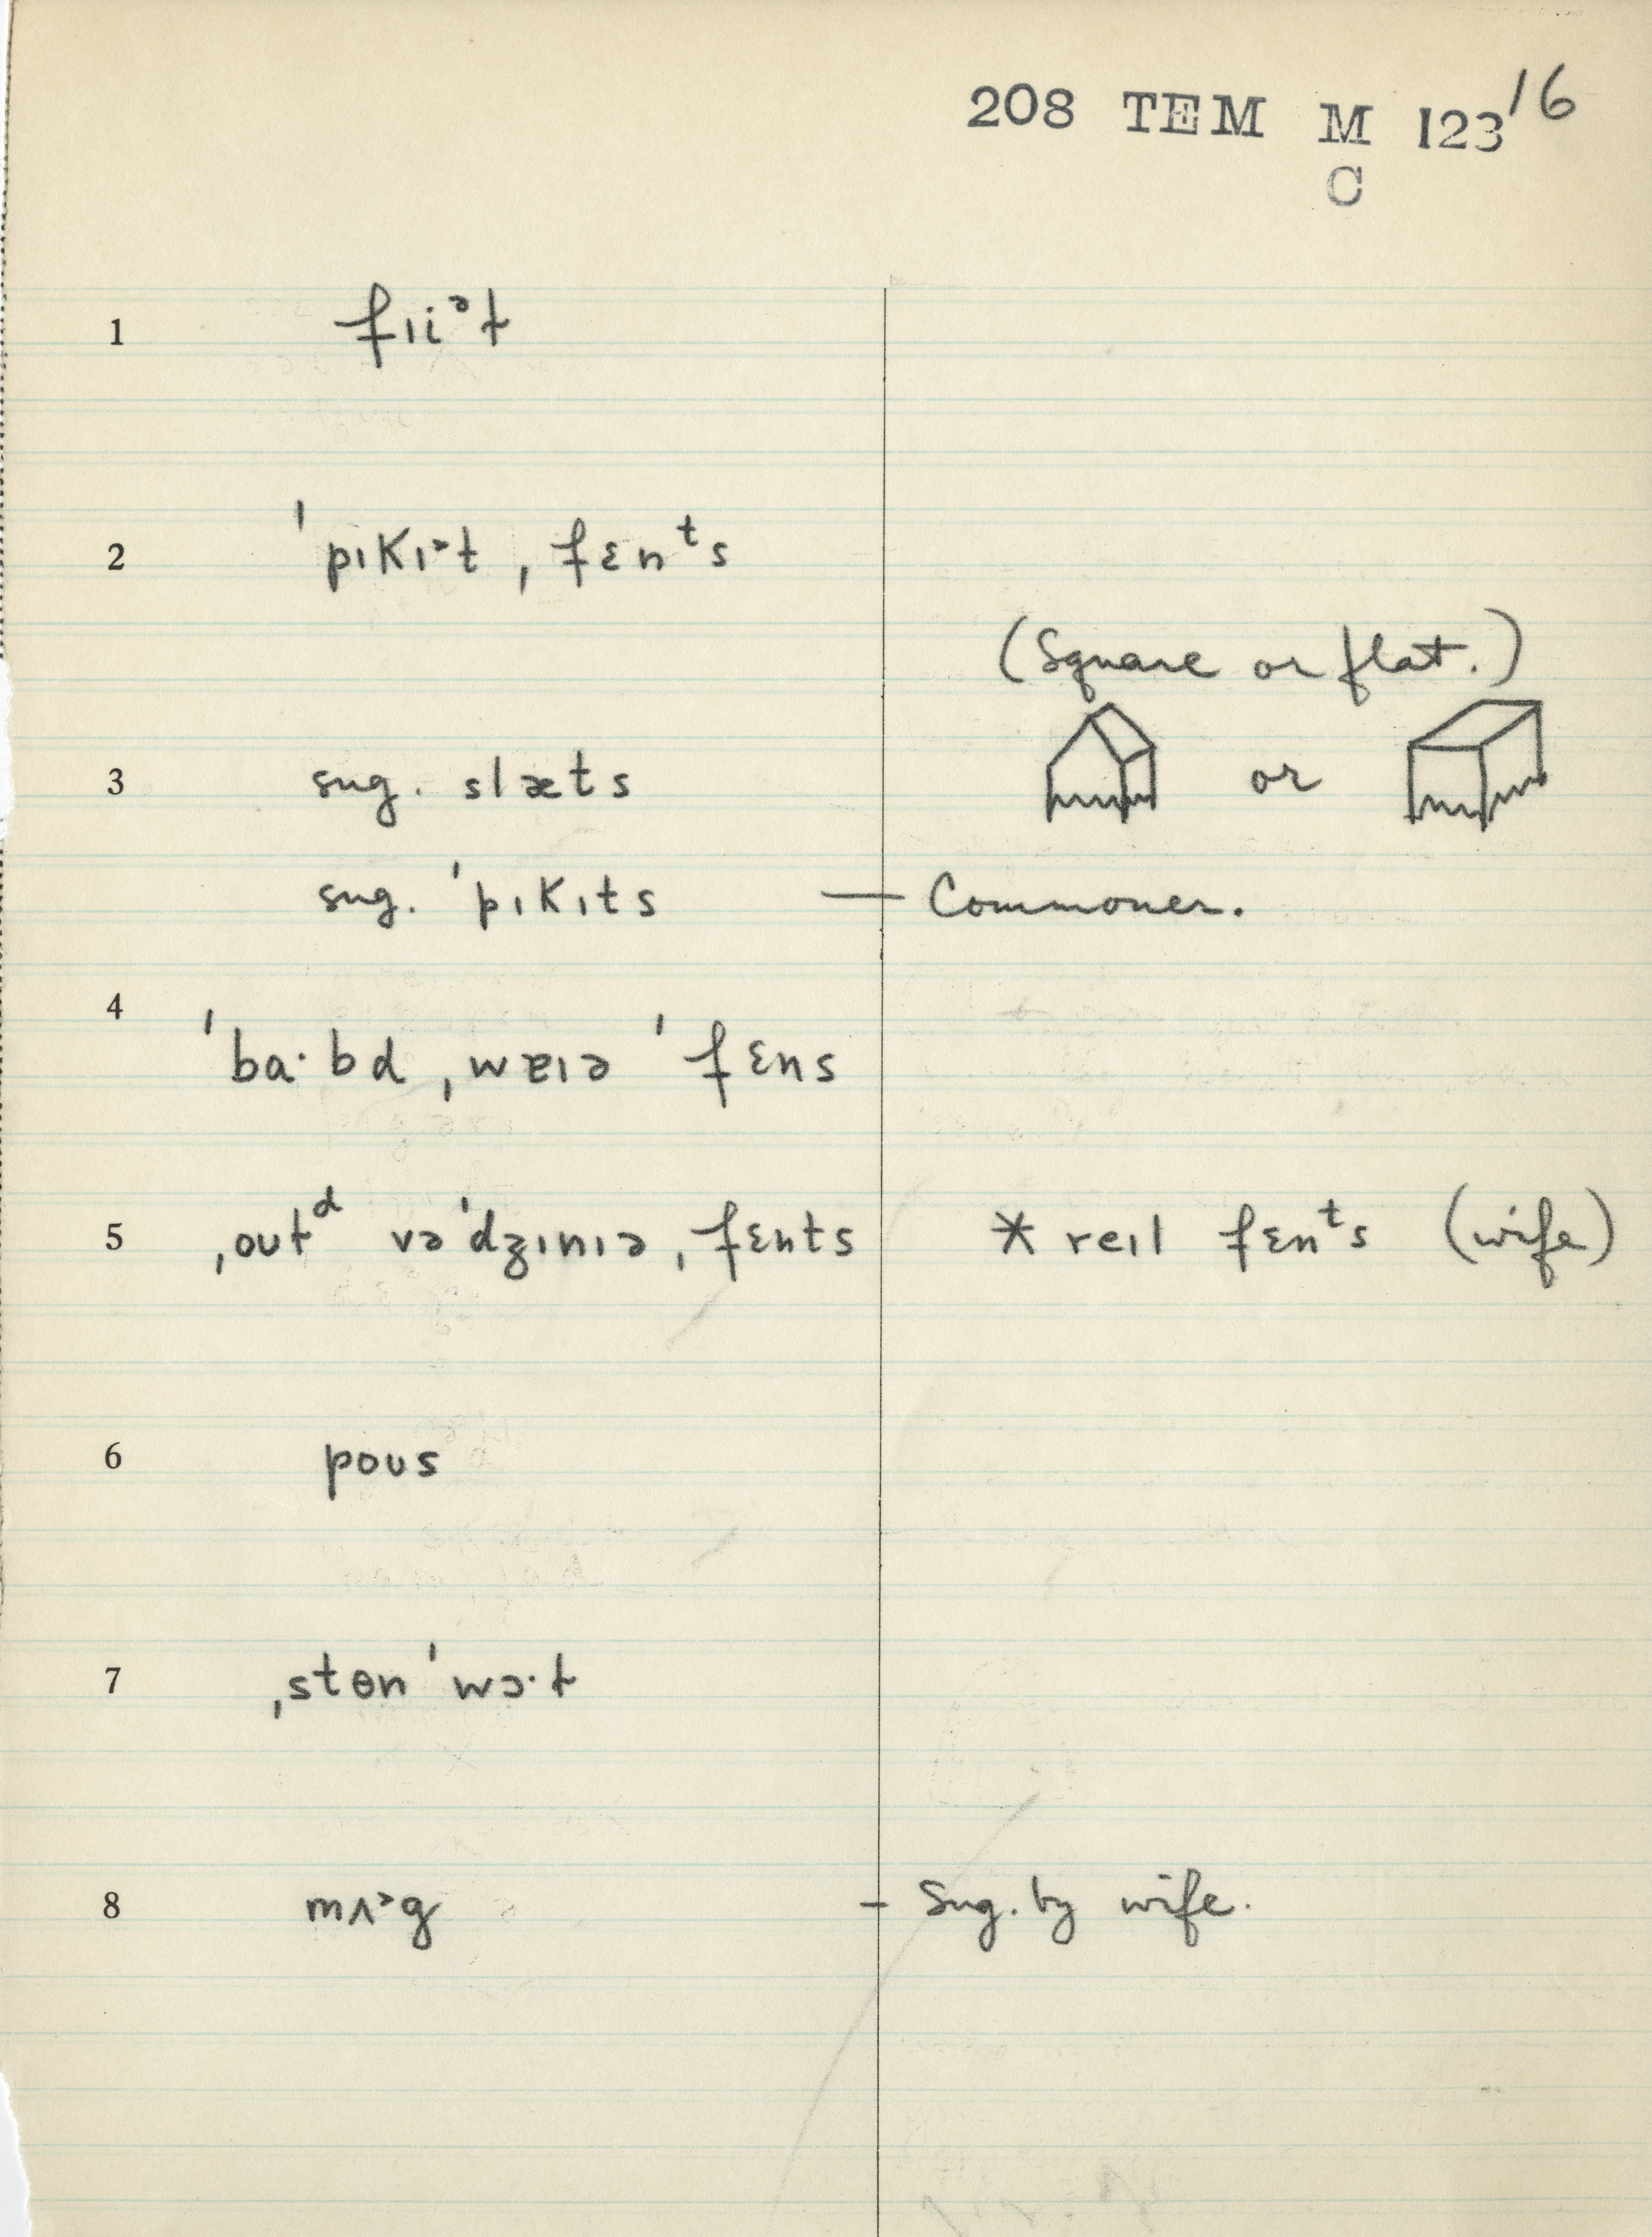 208 TEM M 123 16
C
1 fɪiᵊt
2 ˈpɪkɪᵊt ˌfɛnᵗs
(Square or flat.)
3 sug. slæts or
sug. ˈpɪkɪts — Commoner.
4
ˈbɑ·bd ˌwɐɪə ˈfɛns
5 ˌoʊtᵈ vəˈdʒɪnɪə ˌfɛnts * reɪl fɛnᵗs (wife)
6 poʊs
7 ˌstɵn ˈwɔ·t
8 mʌᵊg – Sug. by wife.